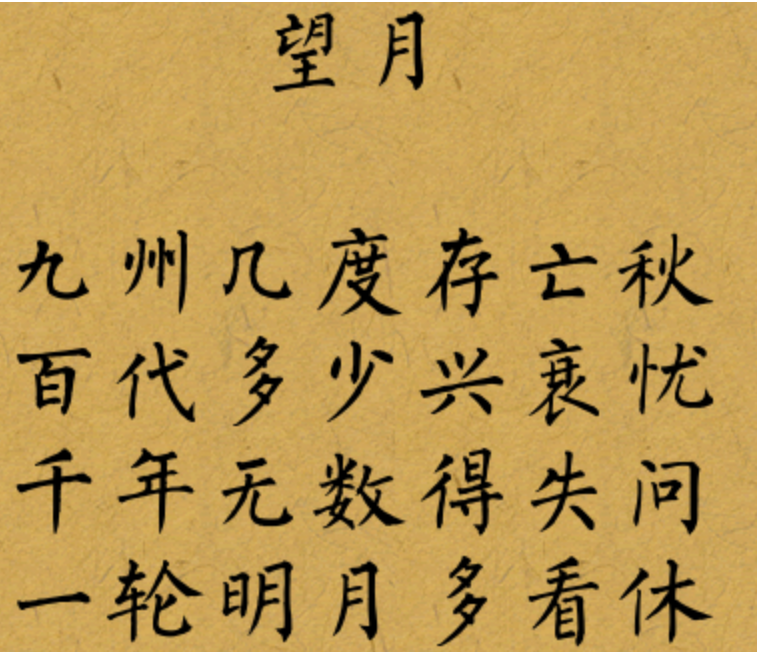 望月
九州几度存亡秋
百代多少兴衰忧
千年无数得失问
一轮明月多看休